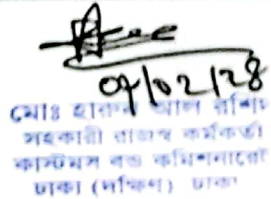 07/02/28
মোঃ হারুন আল রশিদ
সহকারী রাজস্ব কর্মকর্তা
কাস্টমস বন্ড কমিশনারেট
ঢাকা (দক্ষিণ) ঢাকা